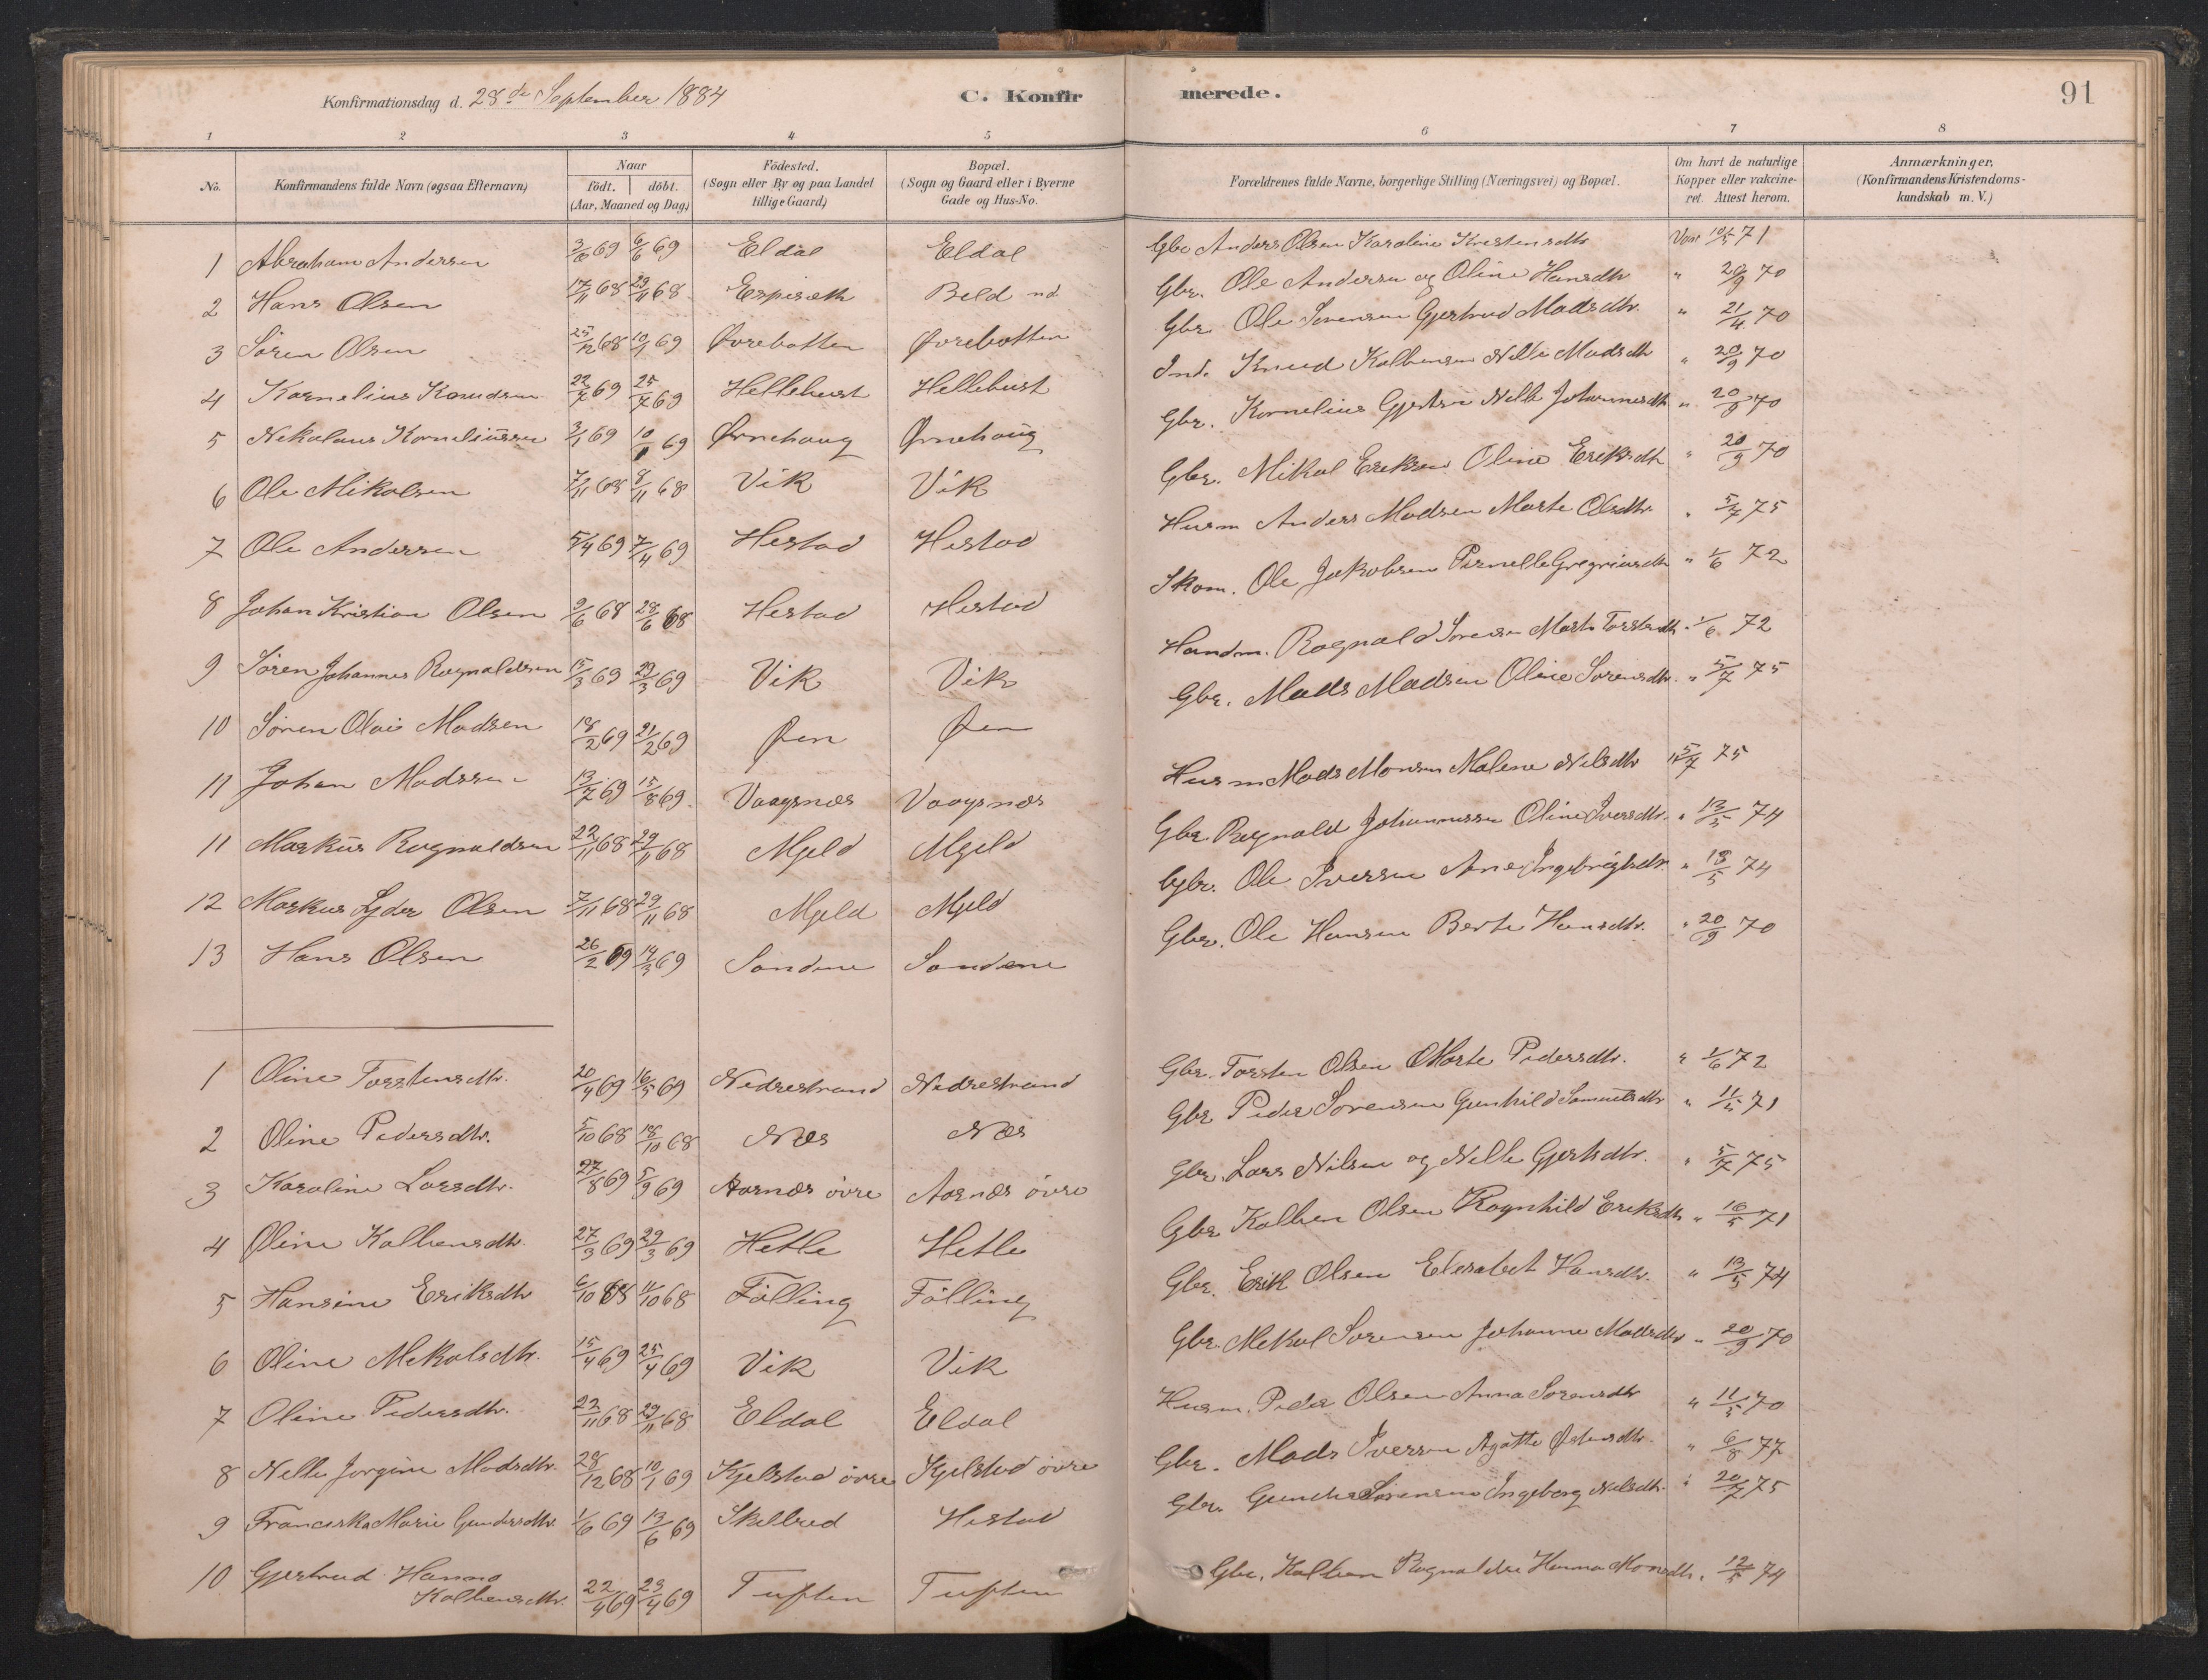 Konfirmationsdag d. 28de September 1884
C. Konfirmerede.
91
1 2 3 4 5 6 7 8
No.
Konfirmandens fulde Navn (ogsaa Efternavn)
Naar födt. döbt. (Aar, Maaned og Dag)
Födested. (Sogn eller By og paa Landet tillige Gaard)
Bopæl. (Sogn og Gaard eller i Byerne Gade og Hus-No.
Forældrenes fulde Navne, borgerlige Stilling (Næringsvei) og Bopæl.
Om havt de naturlige Kopper eller vakcineret. Attest herom.
Anmærkninger, (Konfirmandens Kristendomskundskab m. V.)
1 Abraham Andersen 3/6 69 6/6 69 Eldal Eldal Gbr Anders Olsen Karoline Kristensdtr Vac 10/5 71
2 Hans Olsen 17/11 68 29/11 68 Espesæth Beld nd Gbr. Ole Andersen og Oline Hansdtr " 20/9 70
3 Sören Olsen 25/12 68 10/1 69 Øvrebotten Øvrebotten Gbr Ole Sorensen Gjertrud Madsdtr. " 21/4 70
4 Kornelius Knudsen 22/7 69 25/7 69 Hellebust Hellebust Ind. Knud Kolbensen Nille Madsdtr " 20/9 70
5 Nikolaus Korneliussen 3/1 69 10/1 69 Ørnehaug Ørnehaug Gbr. Kornelius Gjertsen Nille Johannesdtr " 20/8 70
6 Ole Mikalsen 7/11 68 8/11 68 Vik Vik Gbr. Mikal Eriksen Oline Eriksdtr " 20/9 70
7 Ole Andersen 5/4 69 7/4 69 Hestad Hestad Husm Anders Madsen Marte Olsdtr. " 5/7 75
8 Johan Kristian Olsen 9/6 68 28/6 68 Hestad Hestad Skom. Ole Jakobsen Pernelle Gregriusdtr " 1/6 72
9 Sören Johannes Rognaldsen 15/3 69 29/3 69 Vik Vik Handm. Rognald Sorensen Marte Torstendtr " 1/6 72
10 Sören Olai Madsen 18/2 69 21/2 69 Øen Øen Gbr. Mads Madsen Oline Sorensdtr. " 5/7 75
11 Johan Madssen 13/7 69 15/8 69. Vaagsnæs Vaagsnæs Husm Mads Monsen Malene Nilsdtr " 5/7 75
11 Markus Rognaldsen 22/11 68 29/11 68 Mjeld Mjeld Gbr. Rognald Johannessen Oline Iversdtr. " 13/5 74
12 Markus Lyder Olsen 7/11 68 29/11 68 Mjeld Mjeld Gbr. Ole Iversen Ane Ingebrigtsdtr. " 13/5 74
13 Hans Olsen 26/2 69 14/3 69 Sandene Sandene Gbr. Ole Hansen Berte Hansdtr. " 20/9 70
1 Oline Torstensdtr. 20/4 69 16/5 69 Nedrestrand Nedrestrand Gbr. Torsten Olsen Marte Pedersdtr. " 1/6 72
2 Oline Pedersdtr. 5/10 68 18/10 68 Næs Næs Gbr Peder Sorensen Gunhild Samuelsdtr " 11/5 71
3 Karoline Larsdtr. 27/8 69 5/9 69 Aarnæs övre Aarnæs övre Gbr. Lars Nilsen og Nille Gjertsdtr. " 5/7 75
4 Oline Kolbensdtr. 27/3 69 29/3 69 Hetle Hetle Gbr Kolben Olsen Ragnhild Eriksdtr " 10/5 71
5 Hansine Eriksdtr 6/10 68 11/10 68 Fölling Fölling Gbr. Erik Olsen Elisabet Hansdtr. " 13/5 74
6 Oline Mekalsdtr. 15/4 69 25/4 69 Vik Vik Gbr. Mekal Sorensen Johanne Madsdtr " 20/9 70
7 Oline Pedersdtr. 22/11 68 29/11 68 Eldal Eldal Husm. Peder Olsen Anna Sorensdtr " 11/5 70
8 Nille Jorgine Madsdtr. 28/12 68 10/1 69 Kjelstad övre Kjelstad övre Gbr. Mads Iversen Agatte Østensdtr. " 6/8 77
9 Franciska Marie Gundersdtr. 1/6 69 13/6 69 Skilbred Hestad Gbr. Gunder Sorensen Ingeborg Nilsdtr. " 20/7 75
10 Gjertrud Hanna Kolbensdtr. 22/4 69 23/4 69 Tuften Tuften Gbr. Kolben Rognaldsen Hanna Monsdtr. " 12/5 74